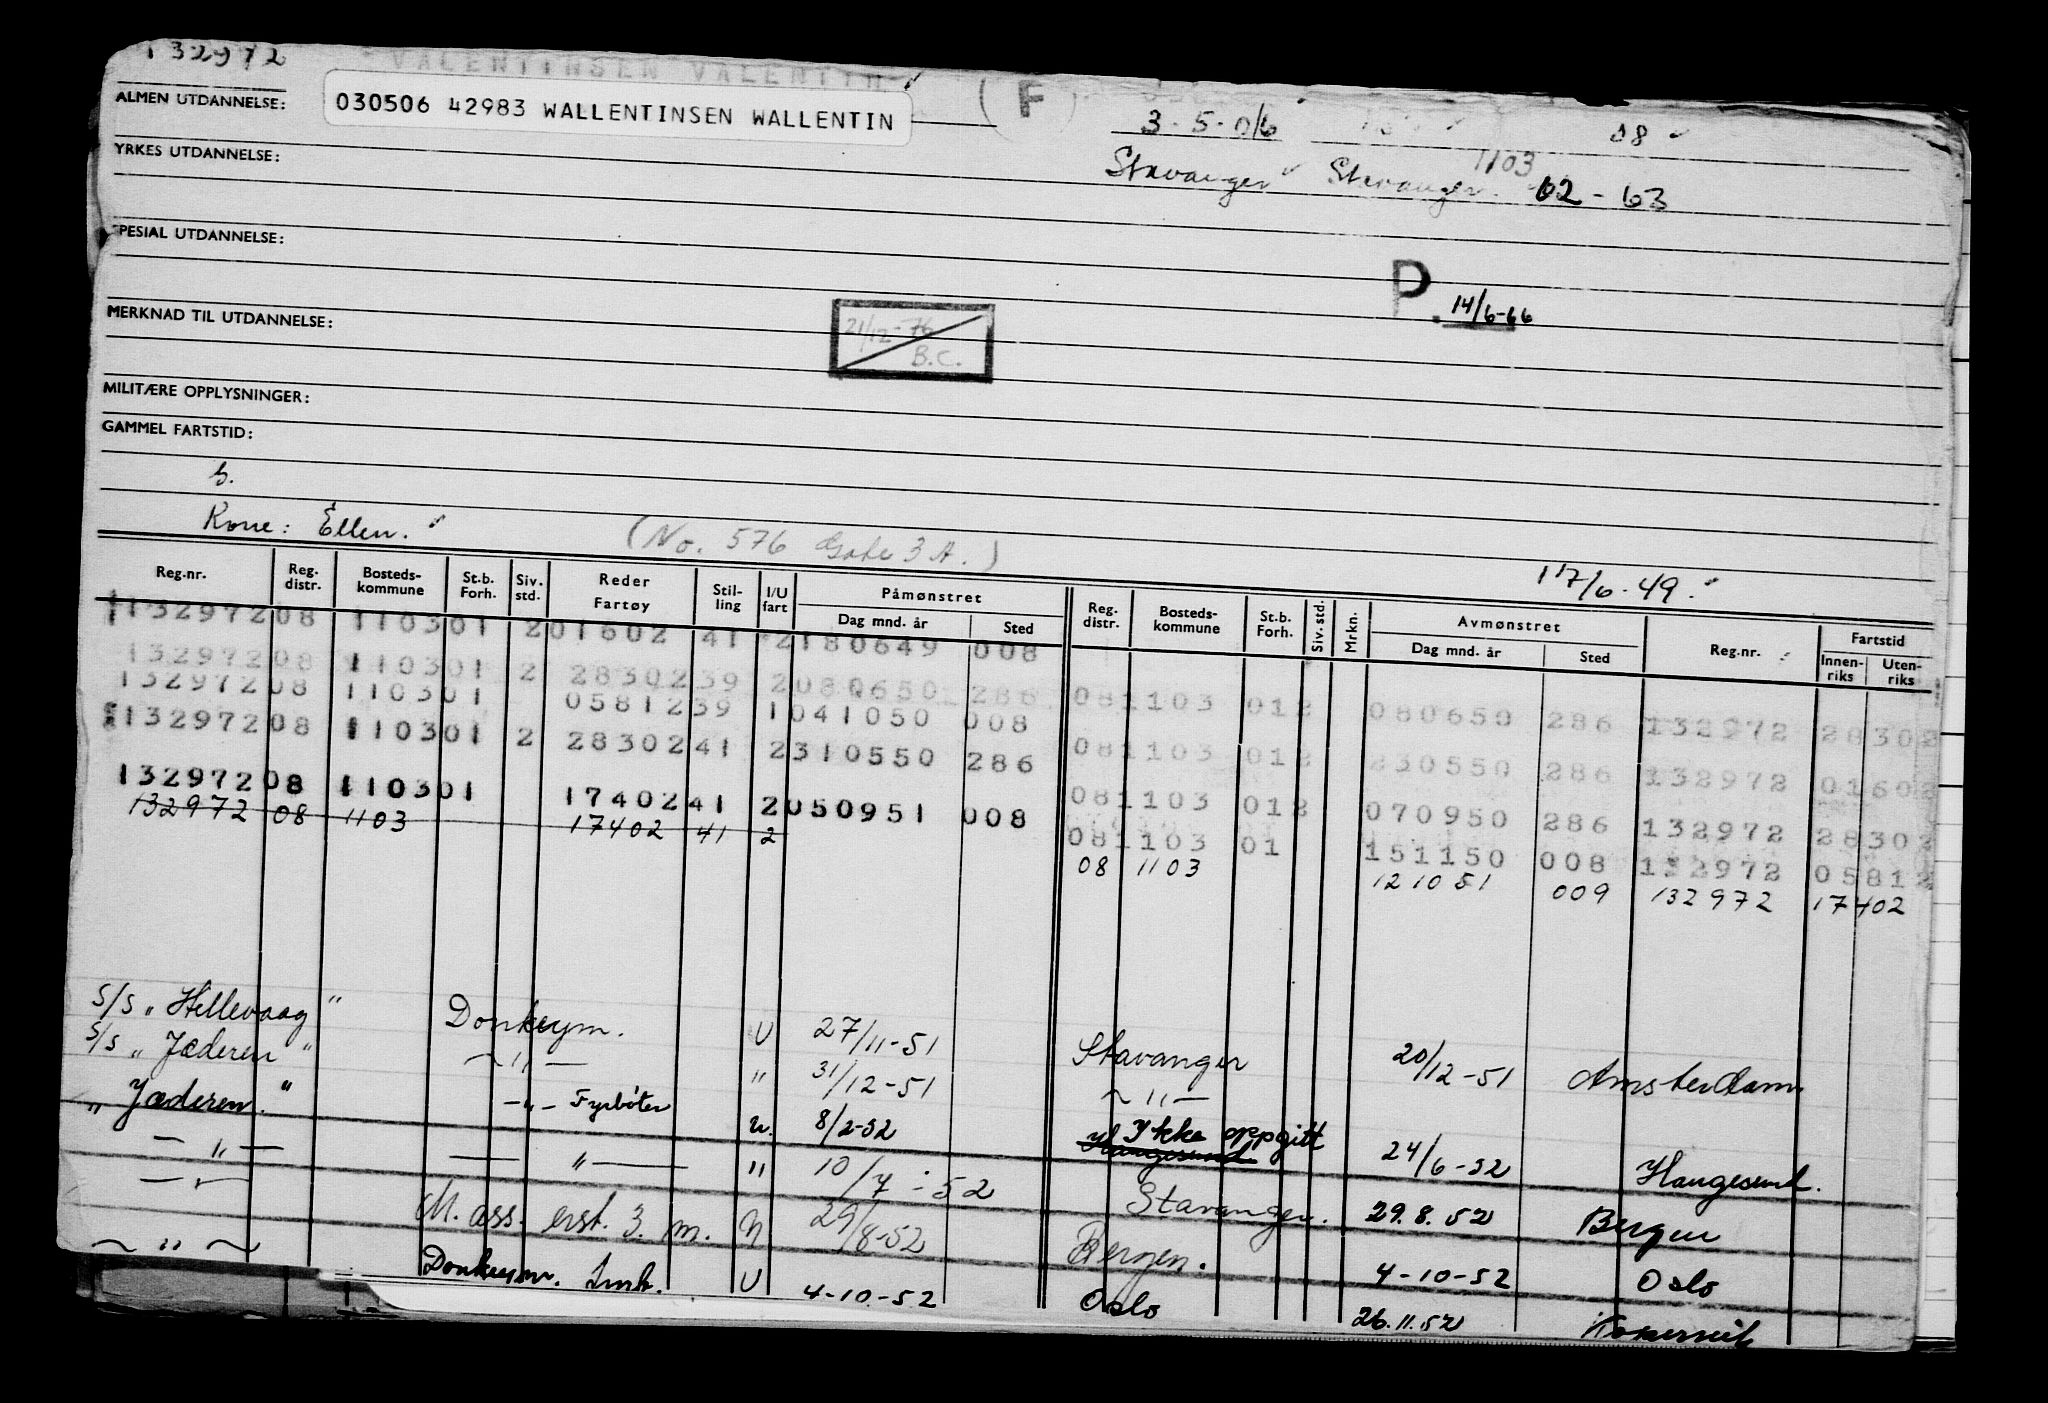 132972 VALENTINSEN VALENTIN
ALMEN UTDANNELSE: 030506 42983 WALLENTINSEN WALLENTIN (F) 3-5-06 08
YRKES UTDANNELSE: Stavanger Stavanger 1103 02-63
SPESIAL UTDANNELSE:
P. 14/6-66
MERKNAD TIL UTDANNELSE: 21/12-76 B.C.
MILITÆRE OPPLYSNINGER:
GAMMEL FARTSTID:
Kone: Ellen. (No. 576 Gate 3 A.)
17/6-49.
Reg.nr. Reg. distr. Bosteds-kommune St.b. Forh. Siv. std. Reder Fartøy Stil-ling I/U fart Påmønstret Dag mnd. år Sted Reg. distr. Bosteds-kommune St.b. Forh. Siv. std. Mrkn. Avmønstret Dag mnd. år Sted Reg.nr. Fartstid Innen-riks Uten-riks
132972 08 1103 01 2 01602 41 2 180649 008
132972 08 1103 01 2 28302 39 2 080650 286 08 1103 01 2 080650 286 132972 28302
132972 08 1103 01 05812 39 1 041050 008
132972 08 1103 01 2 28302 41 2 310550 286 08 1103 01 2 230550 286 132972 01602
132972 08 1103 01 17402 41 2 050951 008 08 1103 01 2 070950 286 132972 28302
132972 08 1103 17402 41 2 08 1103 01 151150 008 132972 05812
08 1103 121051 009 132972 17402
S/S "Hellevaag" Donkeym. U 27/11-51 Stavanger 20/12-51 Amsterdam
S/S "Jæderen" — " — " 31/12-51 — " —
"Jæderen." — " — Fyrbøter u. 8/2-52 Haugesund Ikke oppgitt 24/6-52 Haugesund.
— " — — " — " 10/7-52 Stavanger. 29.8.52 Bergen
— " — M. ass. erst. 3. m. 29/8-52 Bergen. 4-10-52 Oslo
— " — Donkeym. U 4-10-52 Oslo 26.11.52 Kopervik